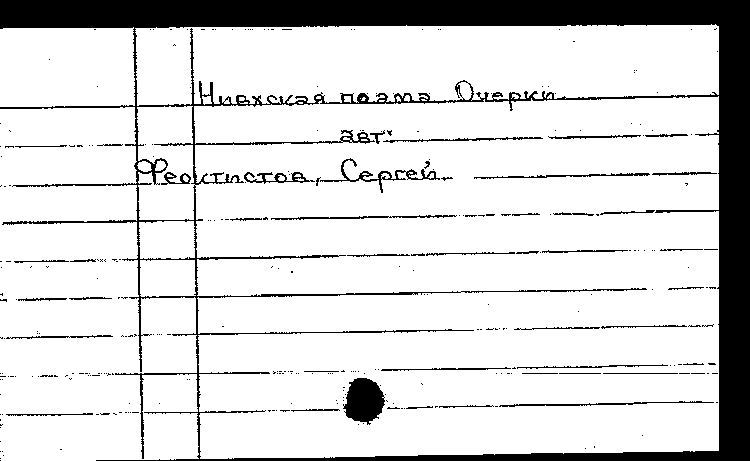 Нивхская поэма Очерки
авт:
Феоктистов, Сергей